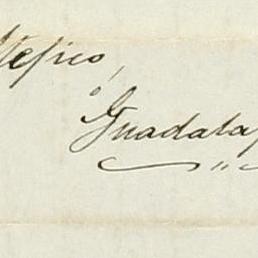 Mejico,
ó
Guadalaj